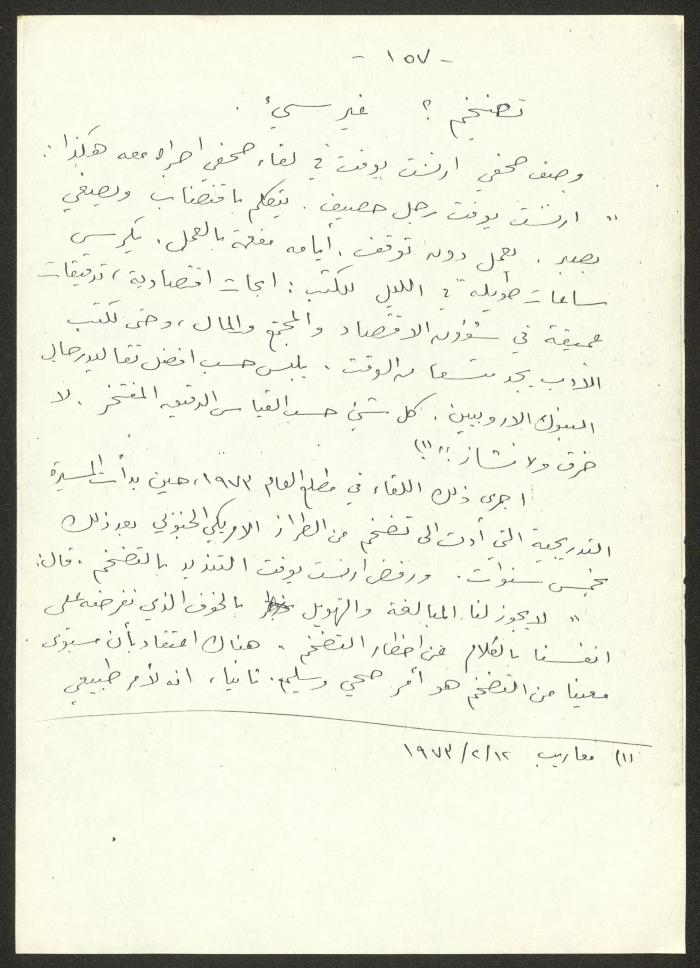 - ١٥٧ -
تضخم ؟ غير سيئ .
وصف صحفي ارنست يوفت في لقاء صحفي اجراه معه هكذا :
" ارنست يوفت رجل حصيف . يتكلم باقتضاب ويصغي
بصبر . يعمل دون توقف . أيامه مفعمة بالعمل . يكرس
ساعات طويلة في الليل للكتب : ابحاث اقتصادية ، تدقيقات
عميقة في شؤون الاقتصاد والمجتمع والمال ، وحتى لكتب
الأدب يجد متسعا من الوقت . يلبس حسب افضل تقاليد رجال
البنوك الاوروبيين . كل شيئ حسب القياس الدقيق المفتخر . لا
خرق ولا نشاز . " (١)
اجري ذلك اللقاء في مطلع العام ١٩٧٣ ، حين بدأت المسيرة
التدريجية التي أدت الى تضخم من الطراز الامريكي الجنوبي بعد ذلك
بخمس سنوات . ورفض ارنست يوفت التنديد بالتضخم . قال :
" لا يجوز لنا المبالغة والتهويل بالخوف الذي نفرضه على
انفسنا بالكلام عن اخطار التضخم . هناك اعتقاد بأن مستوى
معينا من التضخم هو أمر صحي وسليم . ثانيا ، انه لأمر طبيعي
(١) معاريب ١٩٧٣/٢/١٢